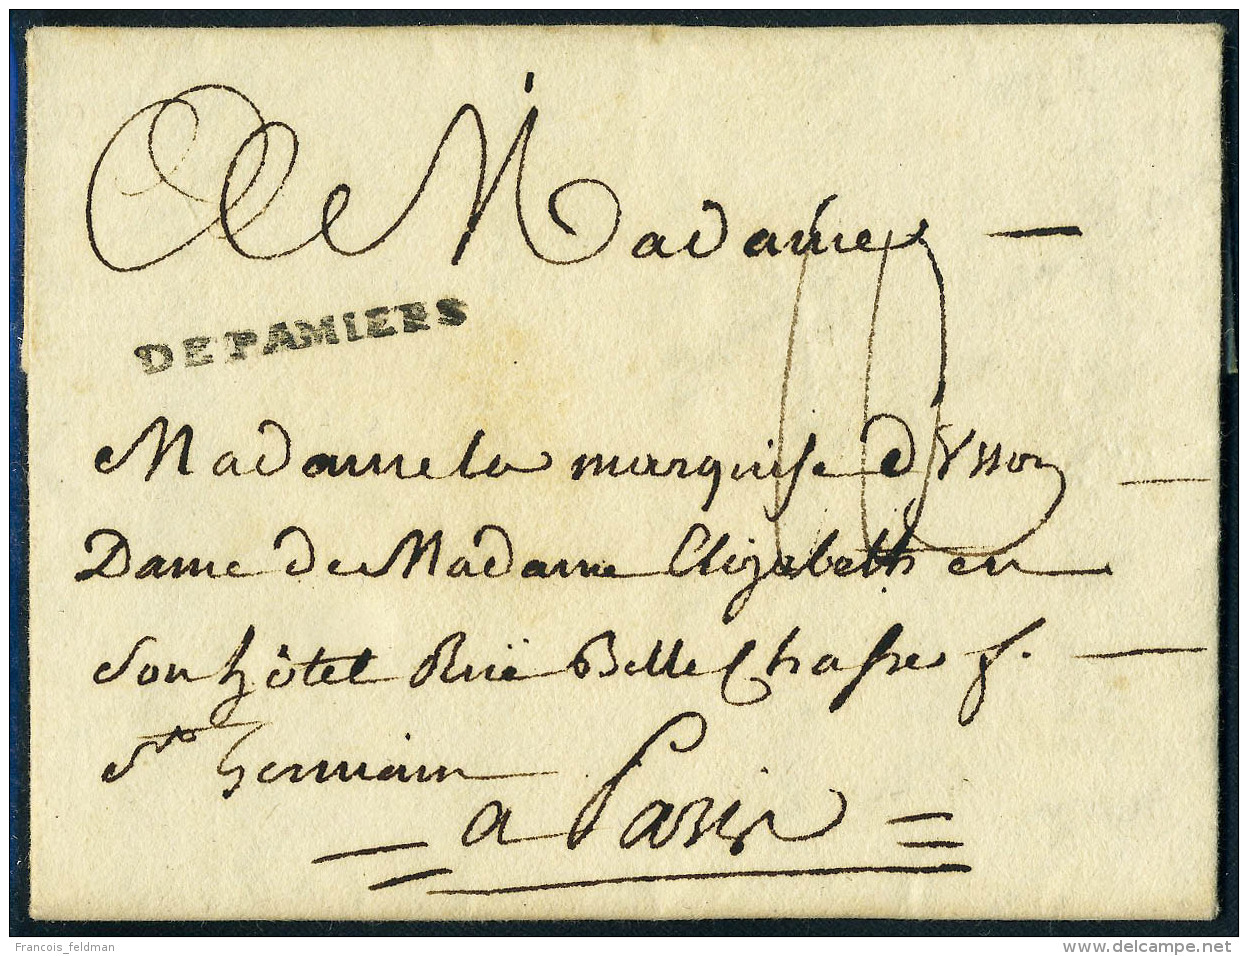 Madame
DE PAMIERS
Madame la marquise d'Usson
Dame de Madame Elizabeth en
Son hôtel Rüe Belle Chasse f.
St. Germain
a Paris
Francois_feldman
www.delcampe.net